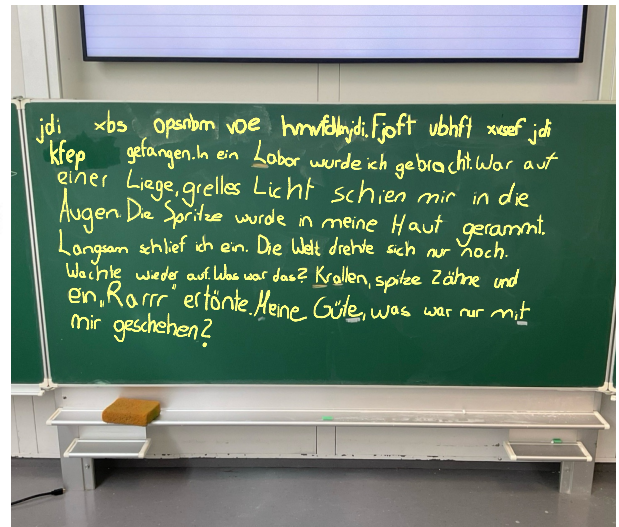 jdi xbs opsnbm voe hmvfdlmjdi. Fjoft ubhft xvsef jdi
kfep gefangen. In ein Labor wurde ich gebracht. War auf
einer Liege, grelles Licht schien mir in die
Augen. Die Spritze wurde in meine Haut gerammt.
Langsam schlief ich ein. Die Welt drehte sich nur noch.
Wachte wieder auf. Was war das? Krallen, spitze Zähne und
ein „Rarrr“ ertönte. Meine Güte, was war nur mit
mir geschehen?